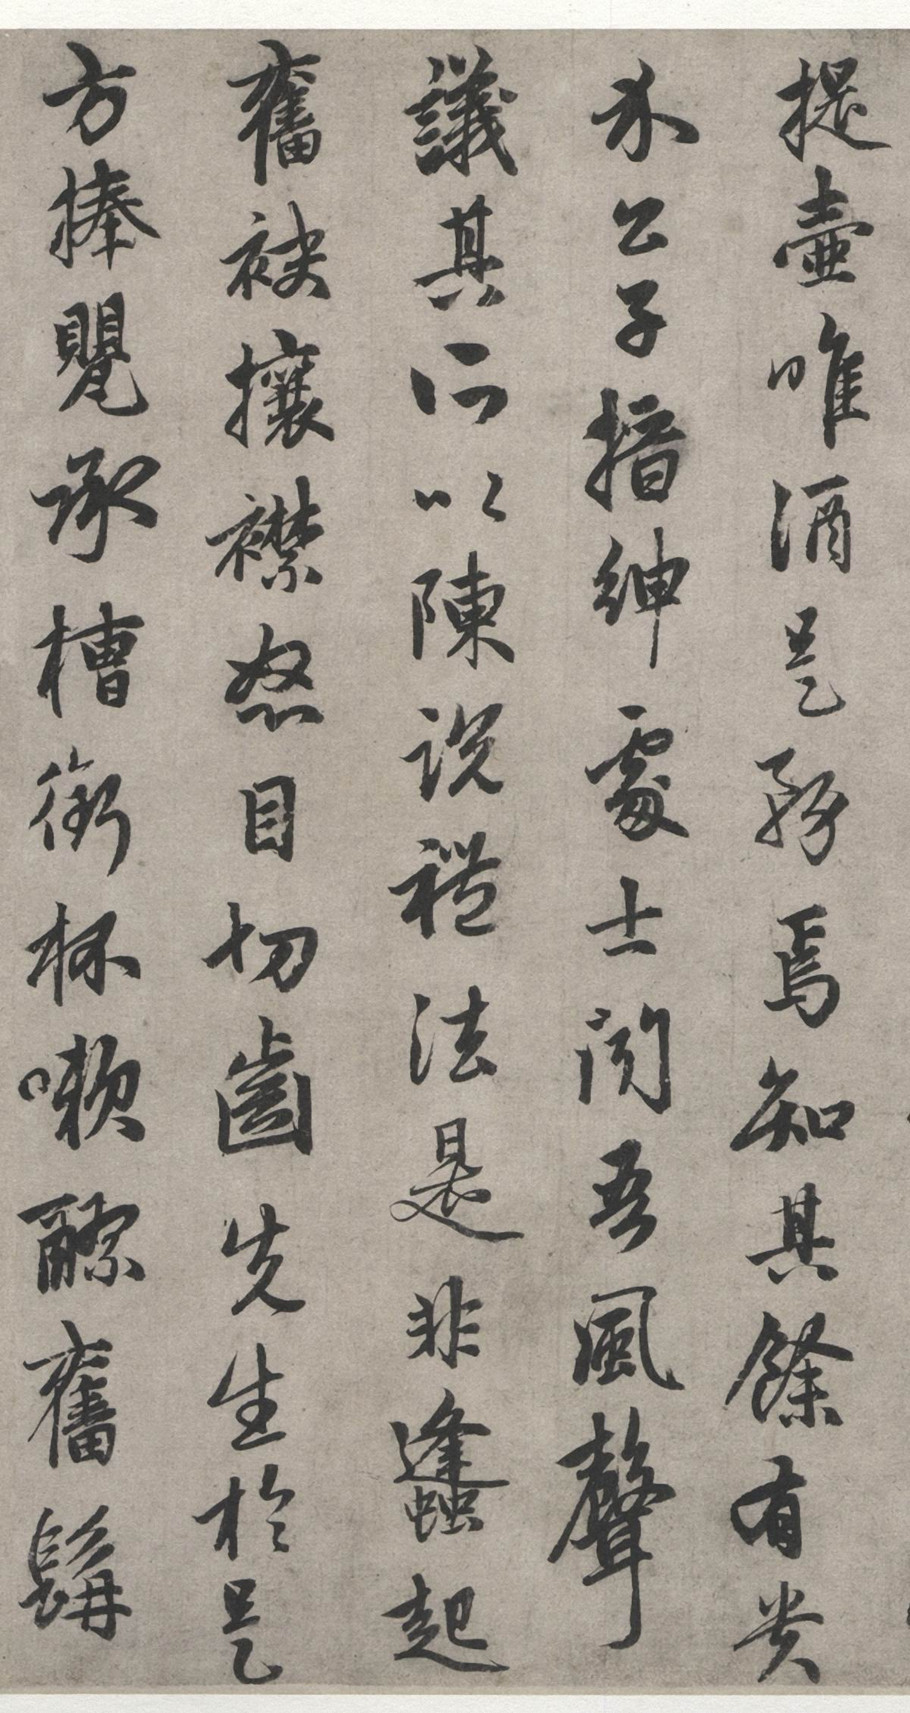 提壺唯酒是務焉知其餘有貴
介公子搢紳處士聞吾風聲
議其所以陳說禮法是非蜂起
奮袂攘襟怒目切齒先生於是
方捧甖承槽銜杯漱醪奮髯